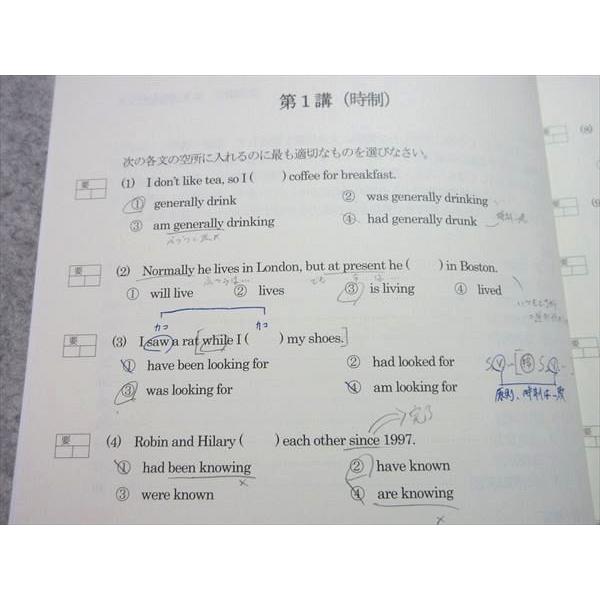 第1講（時制）
次の各文の空所に入れるのに最も適切なものを選びなさい。
要
(1) I don't like tea, so I (　　) coffee for breakfast.
① generally drink ② was generally drinking
③ am generally drinking ④ had generally drunk
要
(2) Normally he lives in London, but at present he (　　) in Boston.
でも
① will live ② lives ③ is living ④ lived
カコ カコ
要
(3) I saw a rat while I (　　) my shoes.]
① have been looking for ② had looked for
③ was looking for ④ am looking for
原則、時制は一致
完了
要
(4) Robin and Hilary (　　) each other since 1997.
① had been knowing ② have known
×
③ were known ④ are knowing
×
(8)